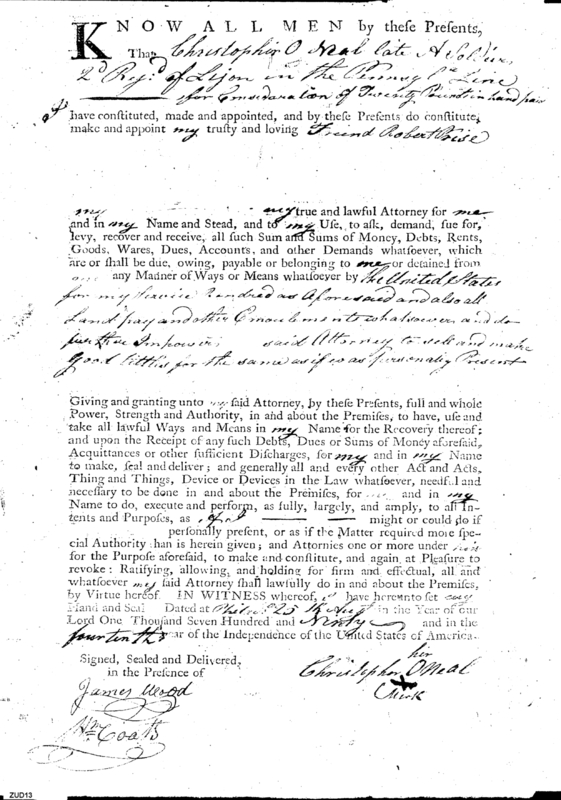 KNOW ALL MEN by these Presents,
That Christopher O Neal late A Soldier
2d Regd of Lijon in the Pennsyla Line
for Consideration of Twenty Pounds in hand paid
I have constituted, made and appointed, and by these Presents do constitute,
make and appoint my trusty and loving Freind Robert
my my true and lawful Attorney for me
and in my Name and Stead, and to my Use, to ask, demand, sue for,
levy, recover and receive, all such Sum and Sums of Money, Debts, Rents,
Goods, Wares, Dues, Accounts, and other Demands whatsoever, which
are or shall be due, owing, payable or belonging to me or detained from
me any Manner of Ways or Means whatsoever by the United States
for my Service Rendred as Aforesaid and also all
Land pay and other Emoulements whatsoever and do
further Impower said Attorney to sell and make
Good tittles for the same as if I was personaly Present
Giving and granting unto my said Attorney, by these Presents, full and whole
Power, Strength and Authority, in and about the Premises, to have, use and
take all lawful Ways and Means in my Name for the Recovery thereof;
and upon the Receipt of any such Debts, Dues or Sums of Money aforesaid,
Acquittances or other sufficient Discharges, for my and in my Name
to make, seal and deliver; and generally all and every other Act and Acts,
Thing and Things, Device or Devices in the Law whatsoever, needful and
necessary to be done in and about the Premises, for me and in my
Name to do, execute and perform, as fully, largely, and amply, to all In-
tents and Purposes, as I might or could do if
personally present, or as if the Matter required more spe-
cial Authority than is herein given; and Attornies one or more under
for the Purpose aforesaid, to make and constitute, and again at Pleasure to
revoke: Ratifying, allowing, and holding for firm and effectual, all and
whatsoever my said Attorney shall lawfully do in and about the Premises,
by Virtue hereof. IN WITNESS whereof, I have hereunto set my
Hand and Seal Dated at Philada 25th Augt in the Year of our
Lord One Thousand Seven Hundred and Ninty and in the
fourtenth Year of the Independence of the United States of America.
Signed, Sealed and Delivered,
in the Presence of
his
Christopher O Neal
Mark
James Wood
Wm Coats
ZUD13